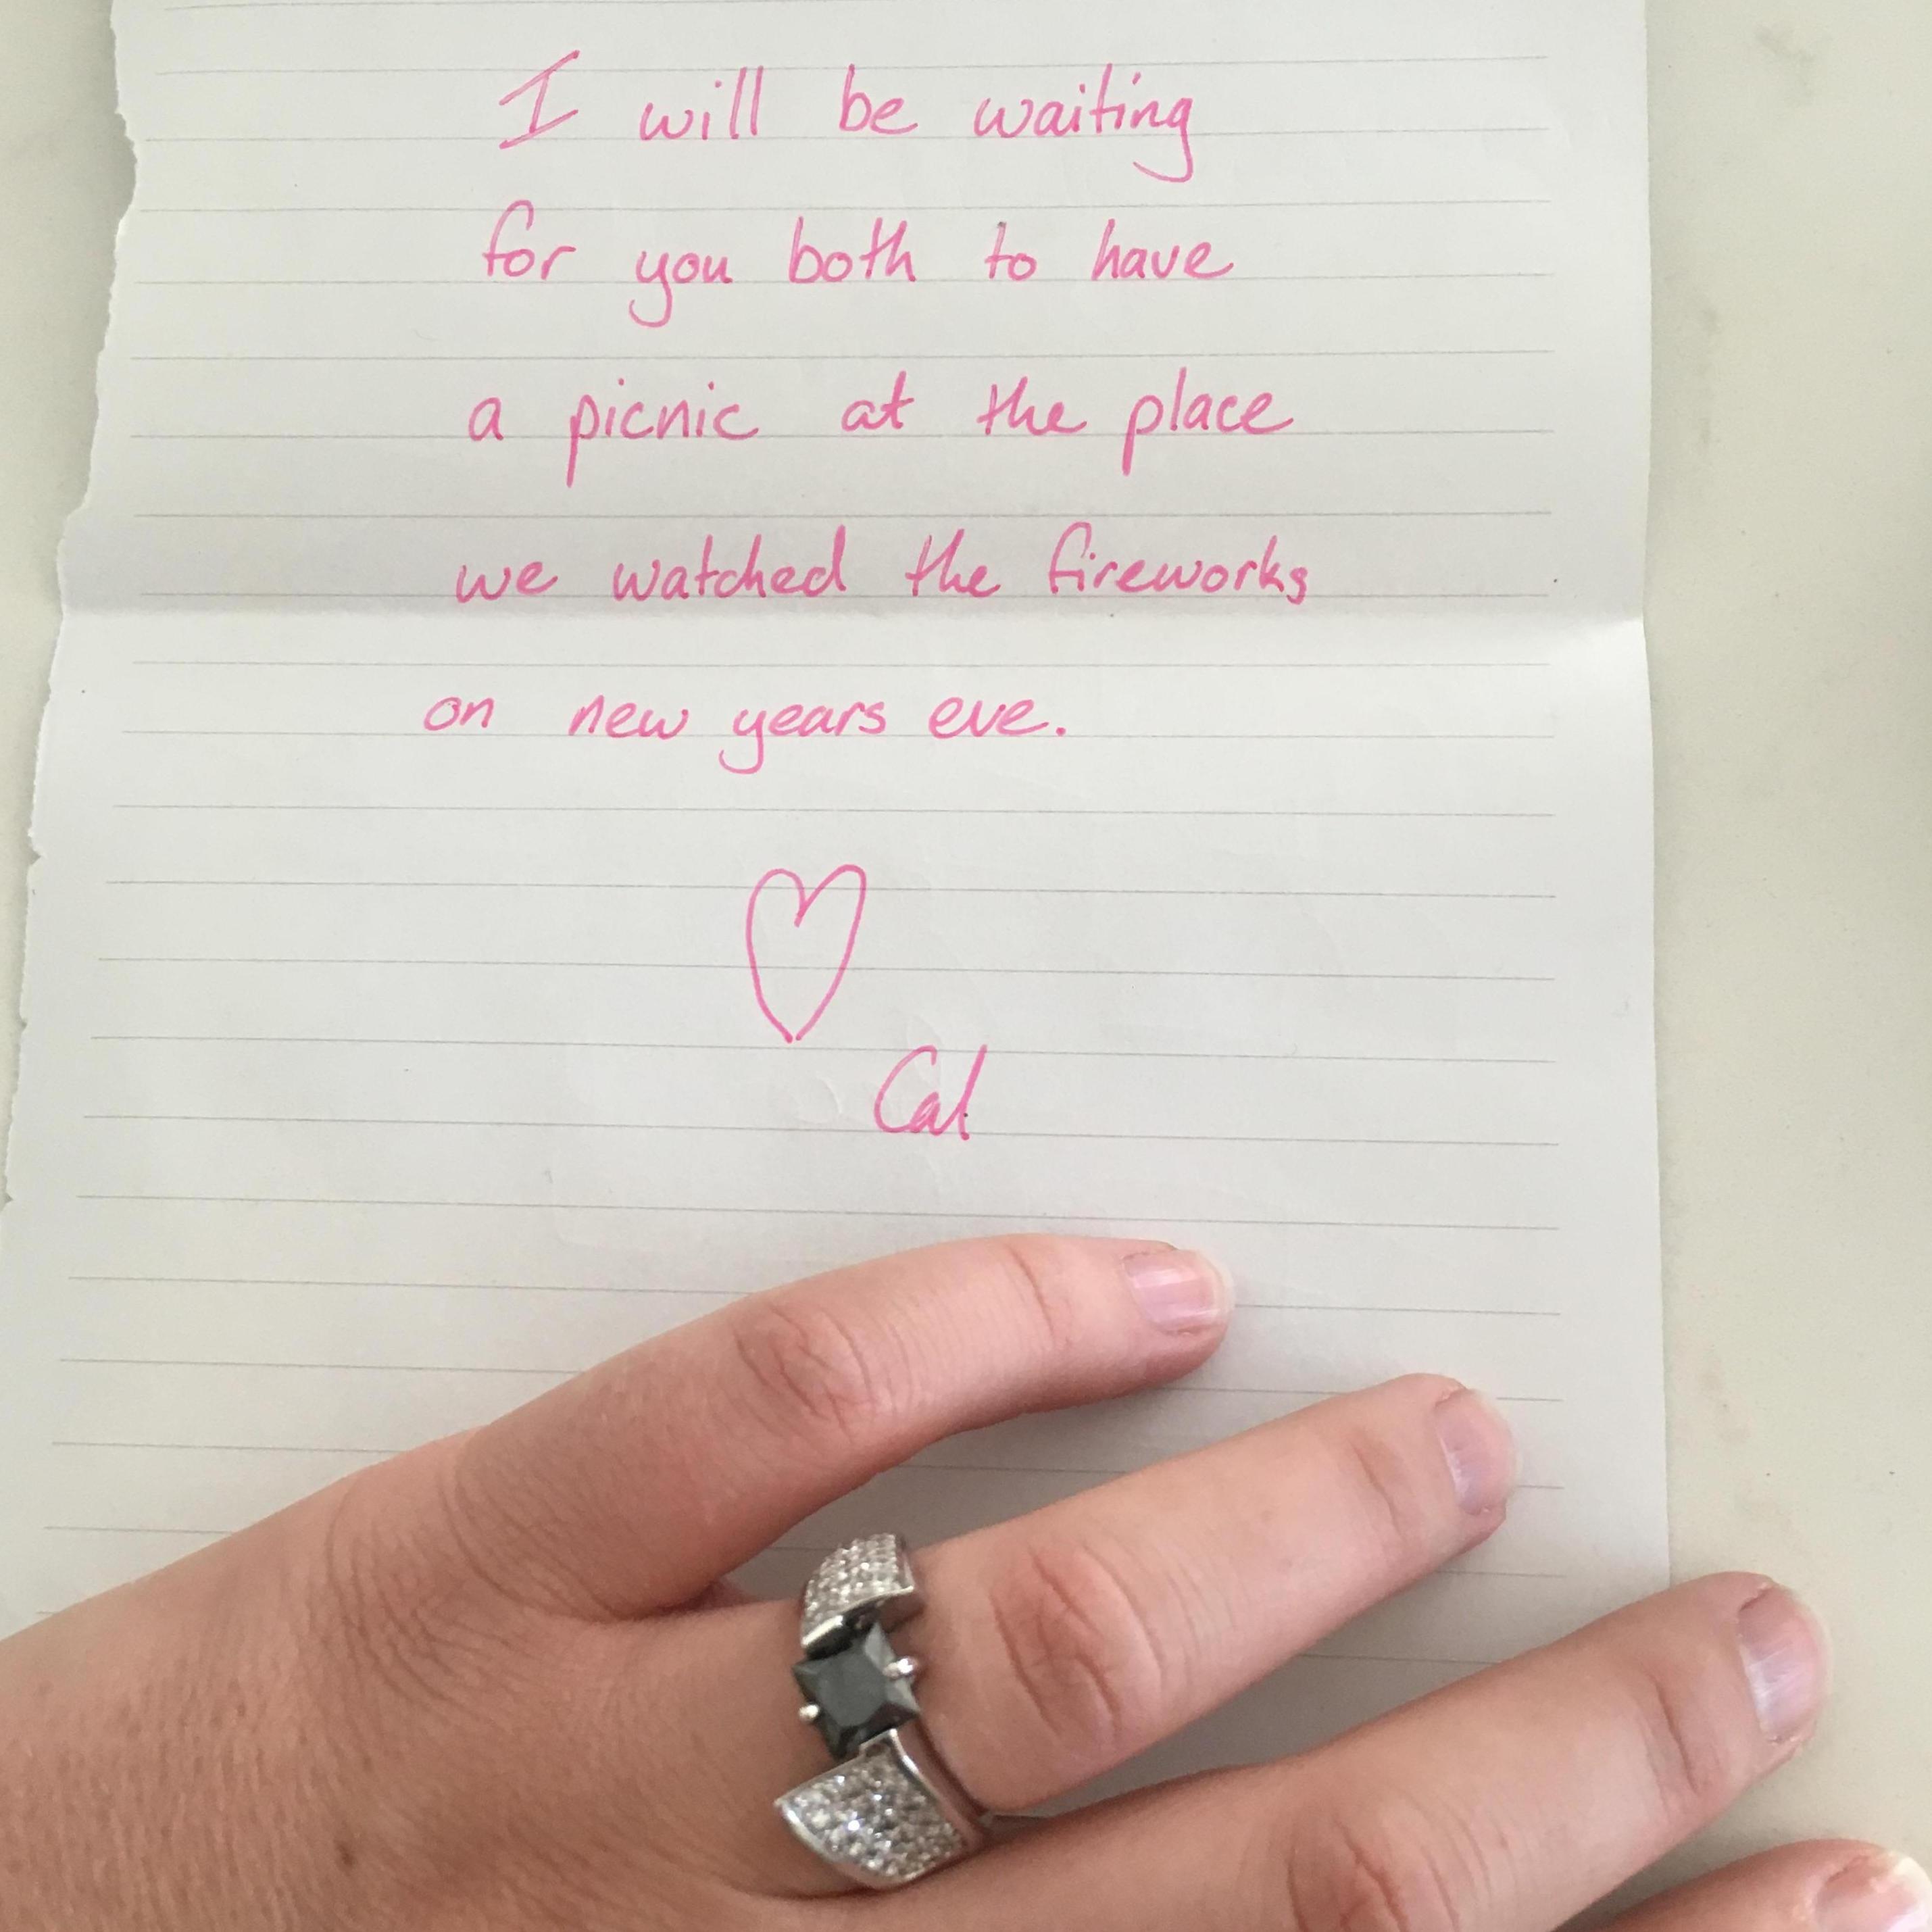 I will be waiting
for you both to have
a picnic at the place
we watched the fireworks
on new years eve.
Cal